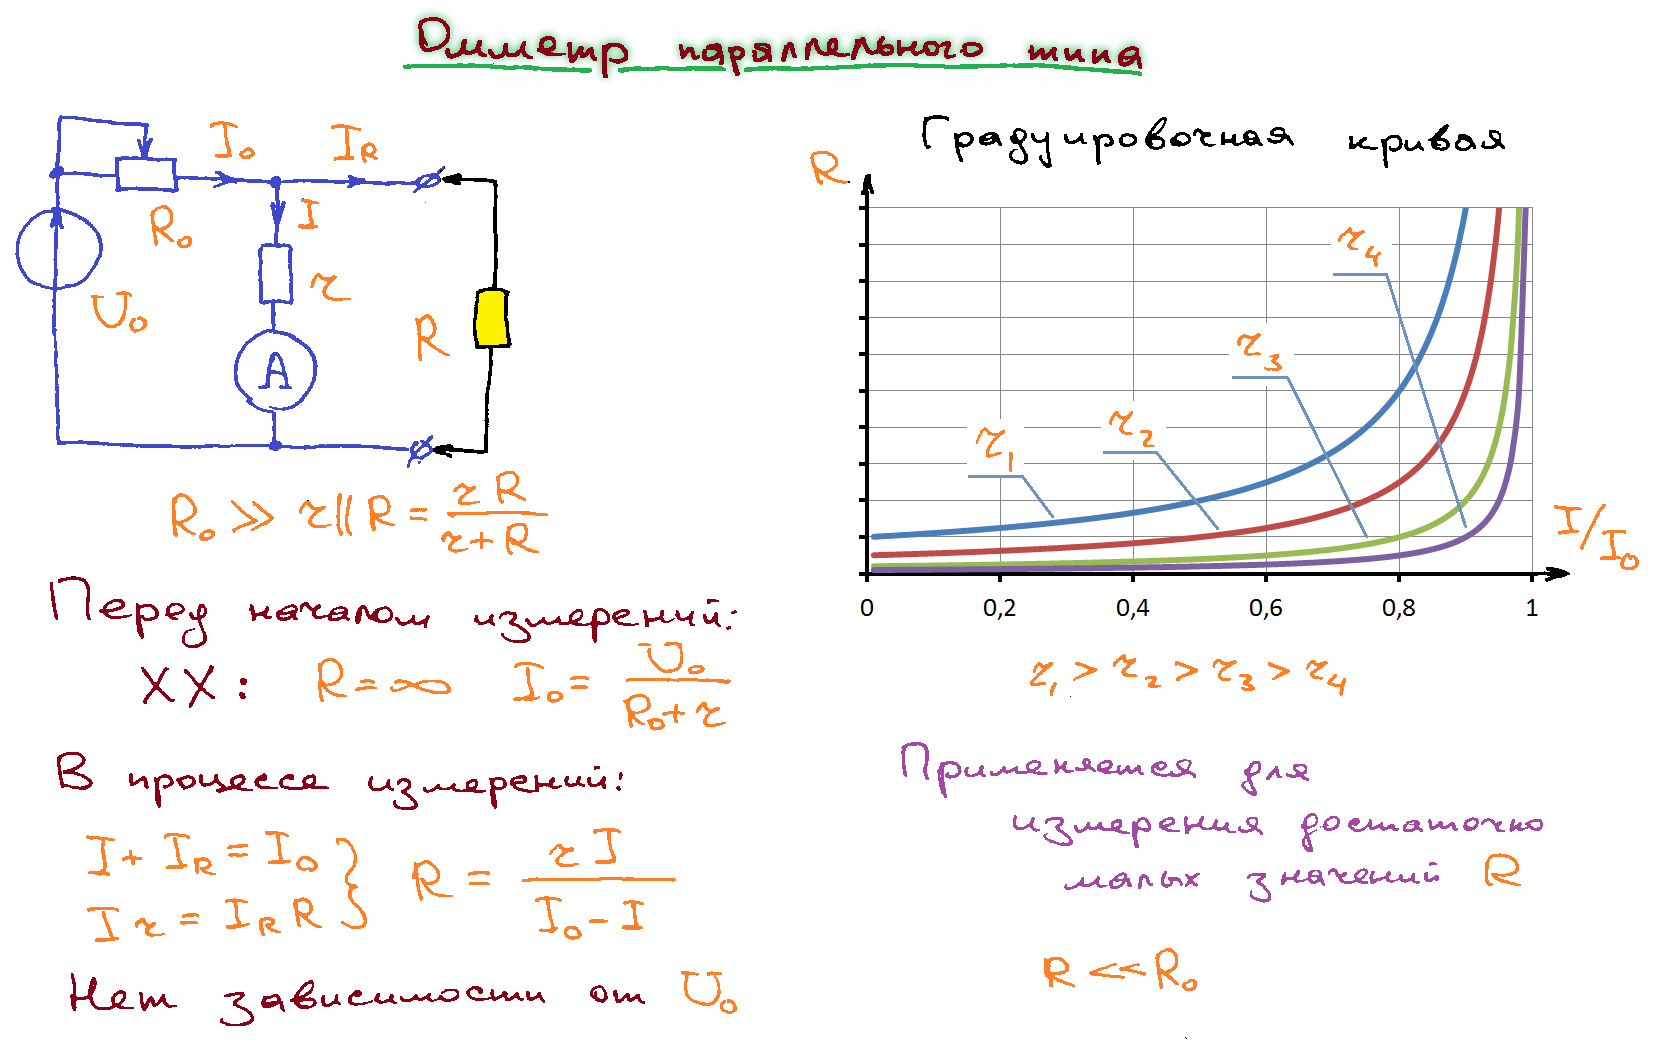 Омметр параллельного типа
I₀ I_R
R₀ I
r
U₀ R
A
R₀ >> r||R = rR/(r+R)
Перед началом измерений:
XX: R = ∞ I₀ = U₀/(R₀+r)
В процессе измерений:
I + I_R = I₀
I r = I_R R } R = r I/(I₀ - I)
Нет зависимости от U₀
Градуировочная кривая
R
r₄
r₃
r₂
r₁
I/I₀
0 0,2 0,4 0,6 0,8 1
r₁ > r₂ > r₃ > r₄
Применяется для
измерения достаточно
малых значений R
R << R₀